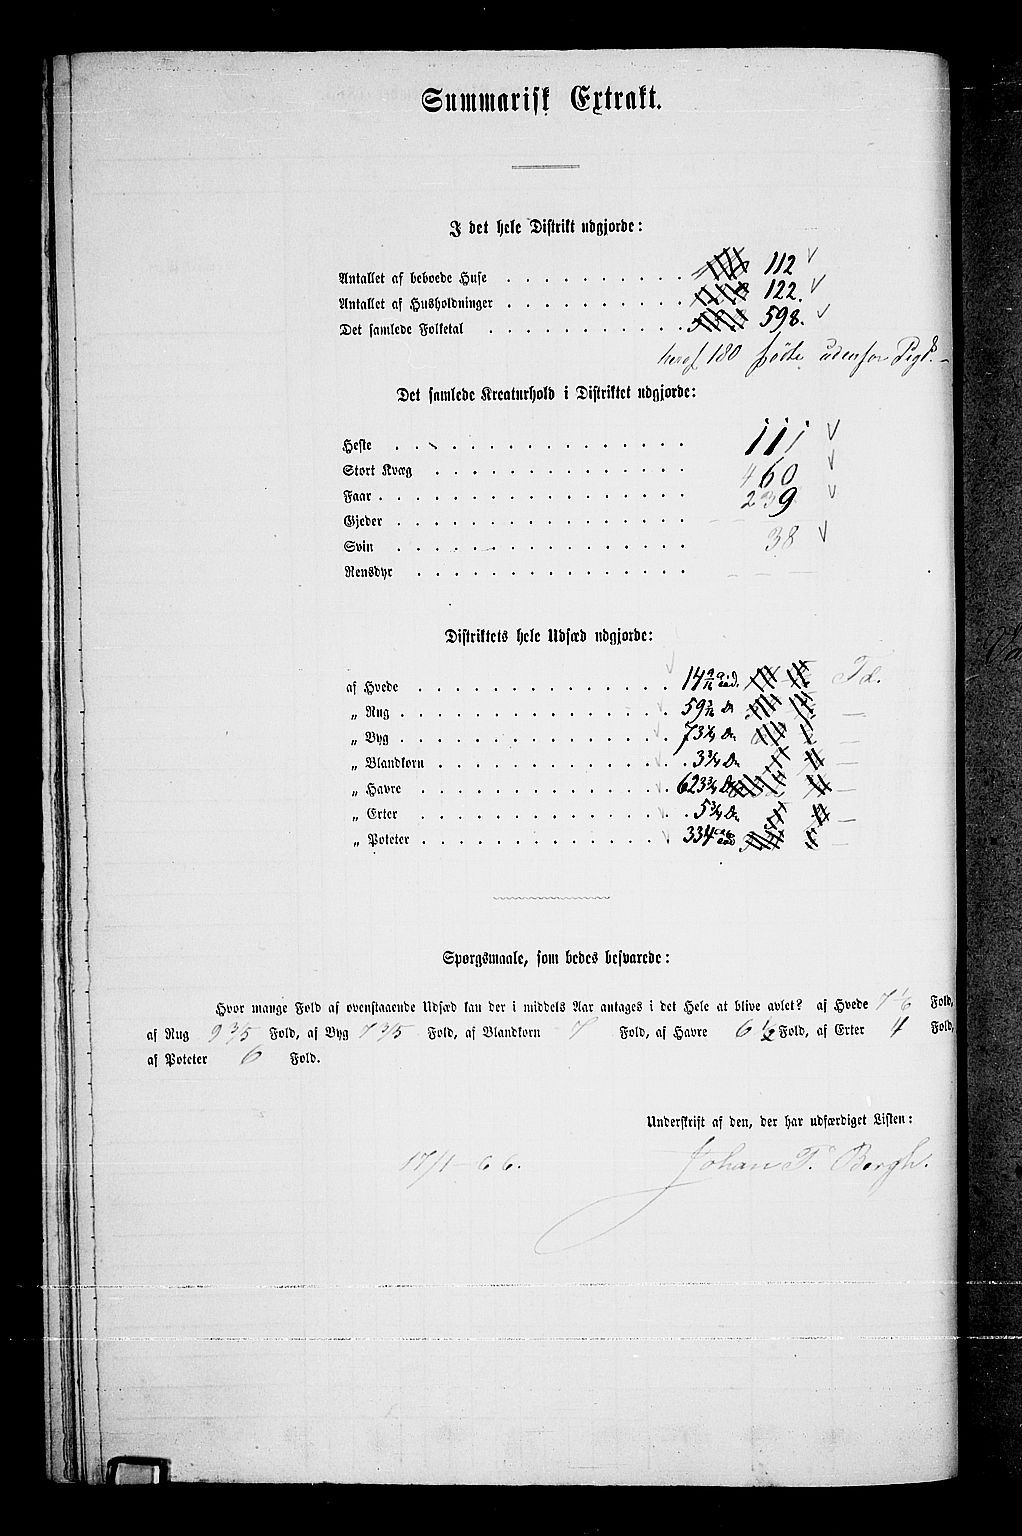 Summarisk Extrakt.
I det hele Distrikt udgjorde:
Antallet af beboede Huse . . . . . . . . . . 112
Antallet af Husholdninger . . . . . . . . . . 122.
Det samlede Folketal . . . . . . . . . . . 598.
heraf 180 fødte udenfor Prgd.
Det samlede Kreaturhold i Distriktet udgjorde:
Heste . . . . . . . . . . . . . . . . 111
Stort Kvæg . . . . . . . . . . . . . . 460
Faar . . . . . . . . . . . . . . . . . 239
Gjeder . . . . . . . . . . . . . . . . — —
Svin . . . . . . . . . . . . . . . . 38
Rensdyr . . . . . . . . . . . . . . . — —
Distriktets hele Udsæd udgjorde:
af Hvede . . . . . . . . . . . . . . 14 9/16 Td.
„ Rug . . . . . . . . . . . . . . . 59 3/16 Do —
„ Byg . . . . . . . . . . . . . . . 73 1/4 Do —
„ Blandkorn . . . . . . . . . . . . . 3 3/4 Do —
„ Havre . . . . . . . . . . . . . . 623 3/4 Do —
„ Erter . . . . . . . . . . . . . . 5 3/4 Do —
„ Poteter . . . . . . . . . . . . . . 334 —
Spørgsmaale, som bedes besvarede:
Hvor mange Fold af ovenstaaende Udsæd kan der i middels Aar antages i det Hele at blive avlet? af Hvede 7 1/6 Fold,
af Rug 9 3/5 Fold, af Byg 7 3/5 Fold, af Blandkorn 7 Fold, af Havre 6 1/2 Fold, af Erter 4 Fold,
af Poteter 6 Fold.
Underskrift af den, der har udfærdiget Listen:
17/1–66. Johan T. Borgh.